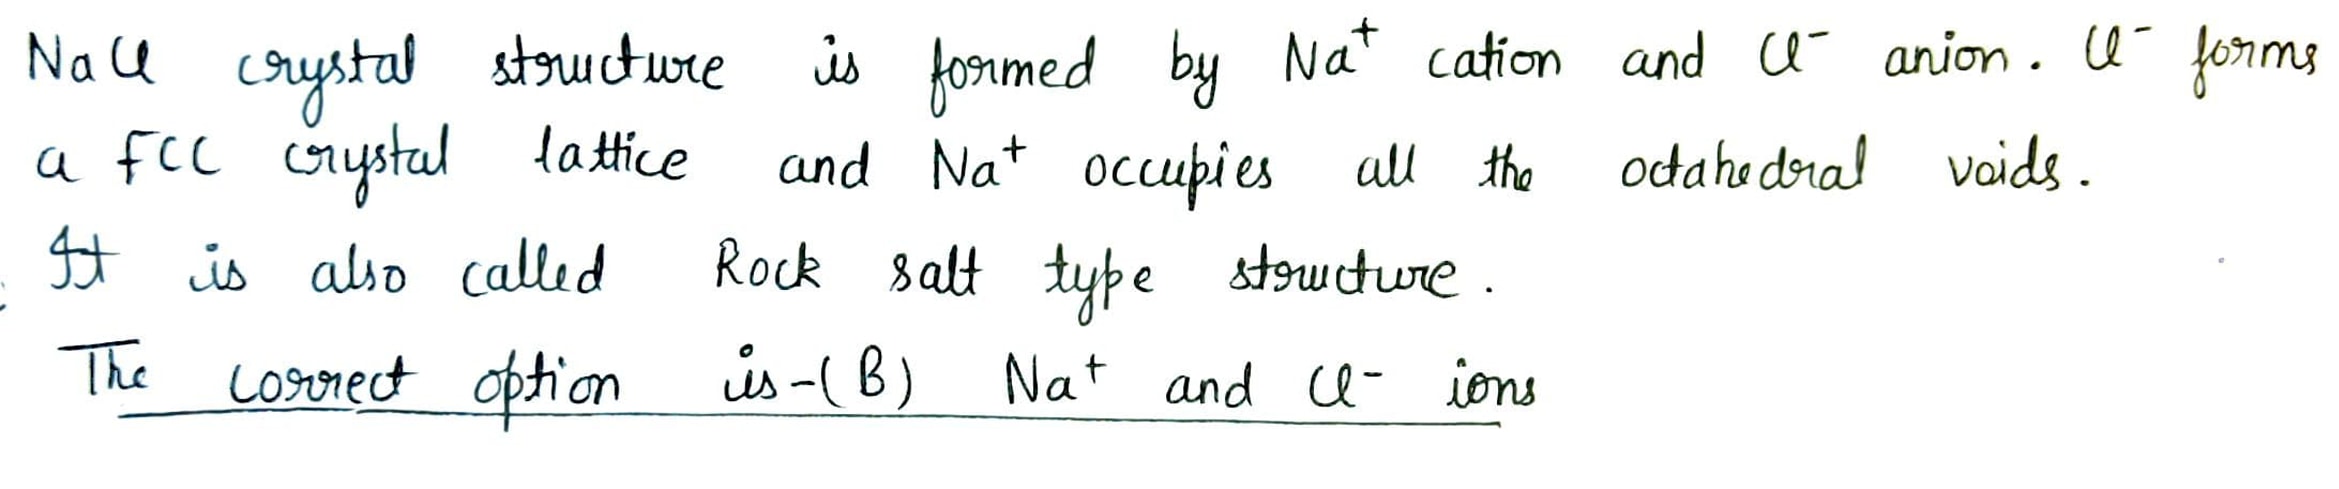 NaCl crystal structure is formed by Na⁺ cation and Cl⁻ anion. Cl⁻ forms
a FCC crystal lattice and Na⁺ occupies all the octahedral voids.
It is also called Rock salt type structure.
The correct option is-(B) Na⁺ and Cl⁻ ions